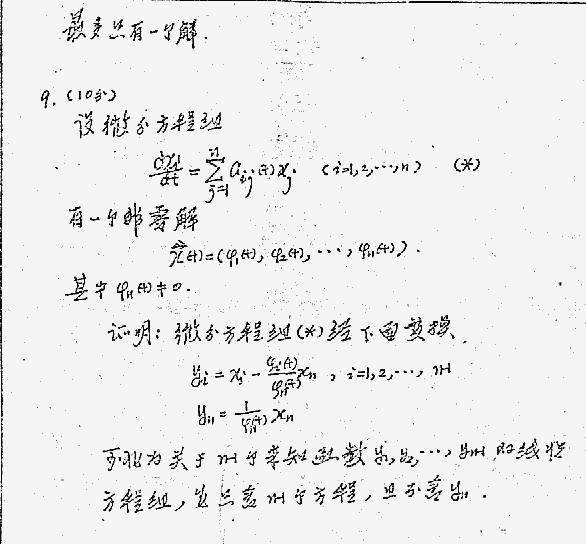 最多只有一个解.
9. (10分)
设微分方程组
dxᵢ/dt = ∑ⱼ₌₁ⁿ aᵢⱼ(t)xⱼ (i=1,2,…,n) (*)
有一个非零解
x̂(t)=(φ₁(t), φ₂(t), …, φₙ(t)).
其中 φₙ(t)≠0.
证明: 微分方程组(*)经下面变换
yᵢ = xᵢ - φᵢ(t)/φₙ(t) xₙ , i=1,2,…, n-1
yₙ = 1/φₙ(t) xₙ
可化为关于n-1个未知函数y₁,y₂,…,yₙ₋₁的线性
方程组, 它只含n-1个方程, 且不含yₙ.